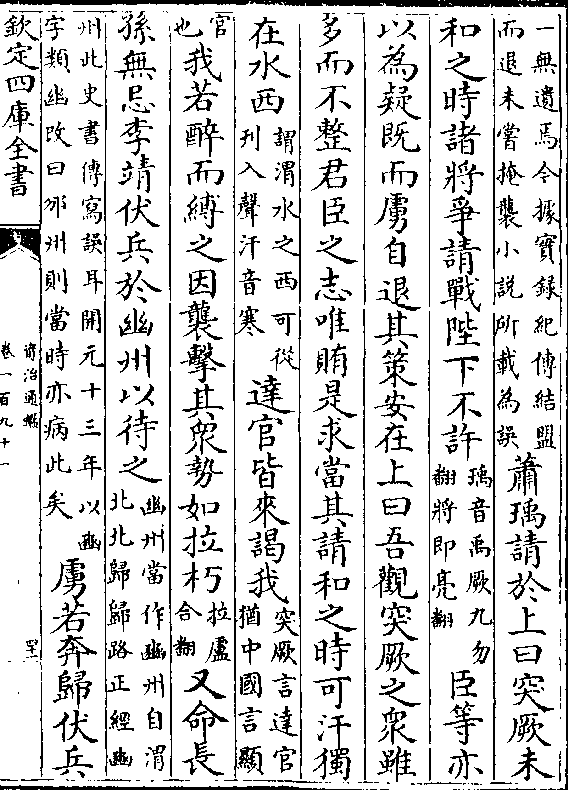 一無遺焉今據實録紀傳結盟
而退未嘗掩襲小説所載為誤
蕭瑀請於上曰突厥未
和之時諸將爭請戰陛下不許
瑀音禹厥九勿
翻將即亮翻
臣等亦
以為疑既而虜自退其策安在上曰吾觀突厥之衆雖
多而不整君臣之志唯賄是求當其請和之時可汗獨
在水西
謂渭水之西可從
刋入聲汗音寒
達官皆來謁我
突厥言達官
猶中國言顯
官
也
我若醉而縛之因襲擊其衆勢如拉朽
拉盧
合翻
又命長
孫無忌李靖伏兵於幽州以待之
幽州當作豳州自渭
北北歸歸路正經豳
州此史書傳寫誤耳開元十三年以豳
字類幽改曰邠州則當時亦病此矣
虜若奔歸伏兵
欽定四庫全書
資治通鑑
卷一百九十一